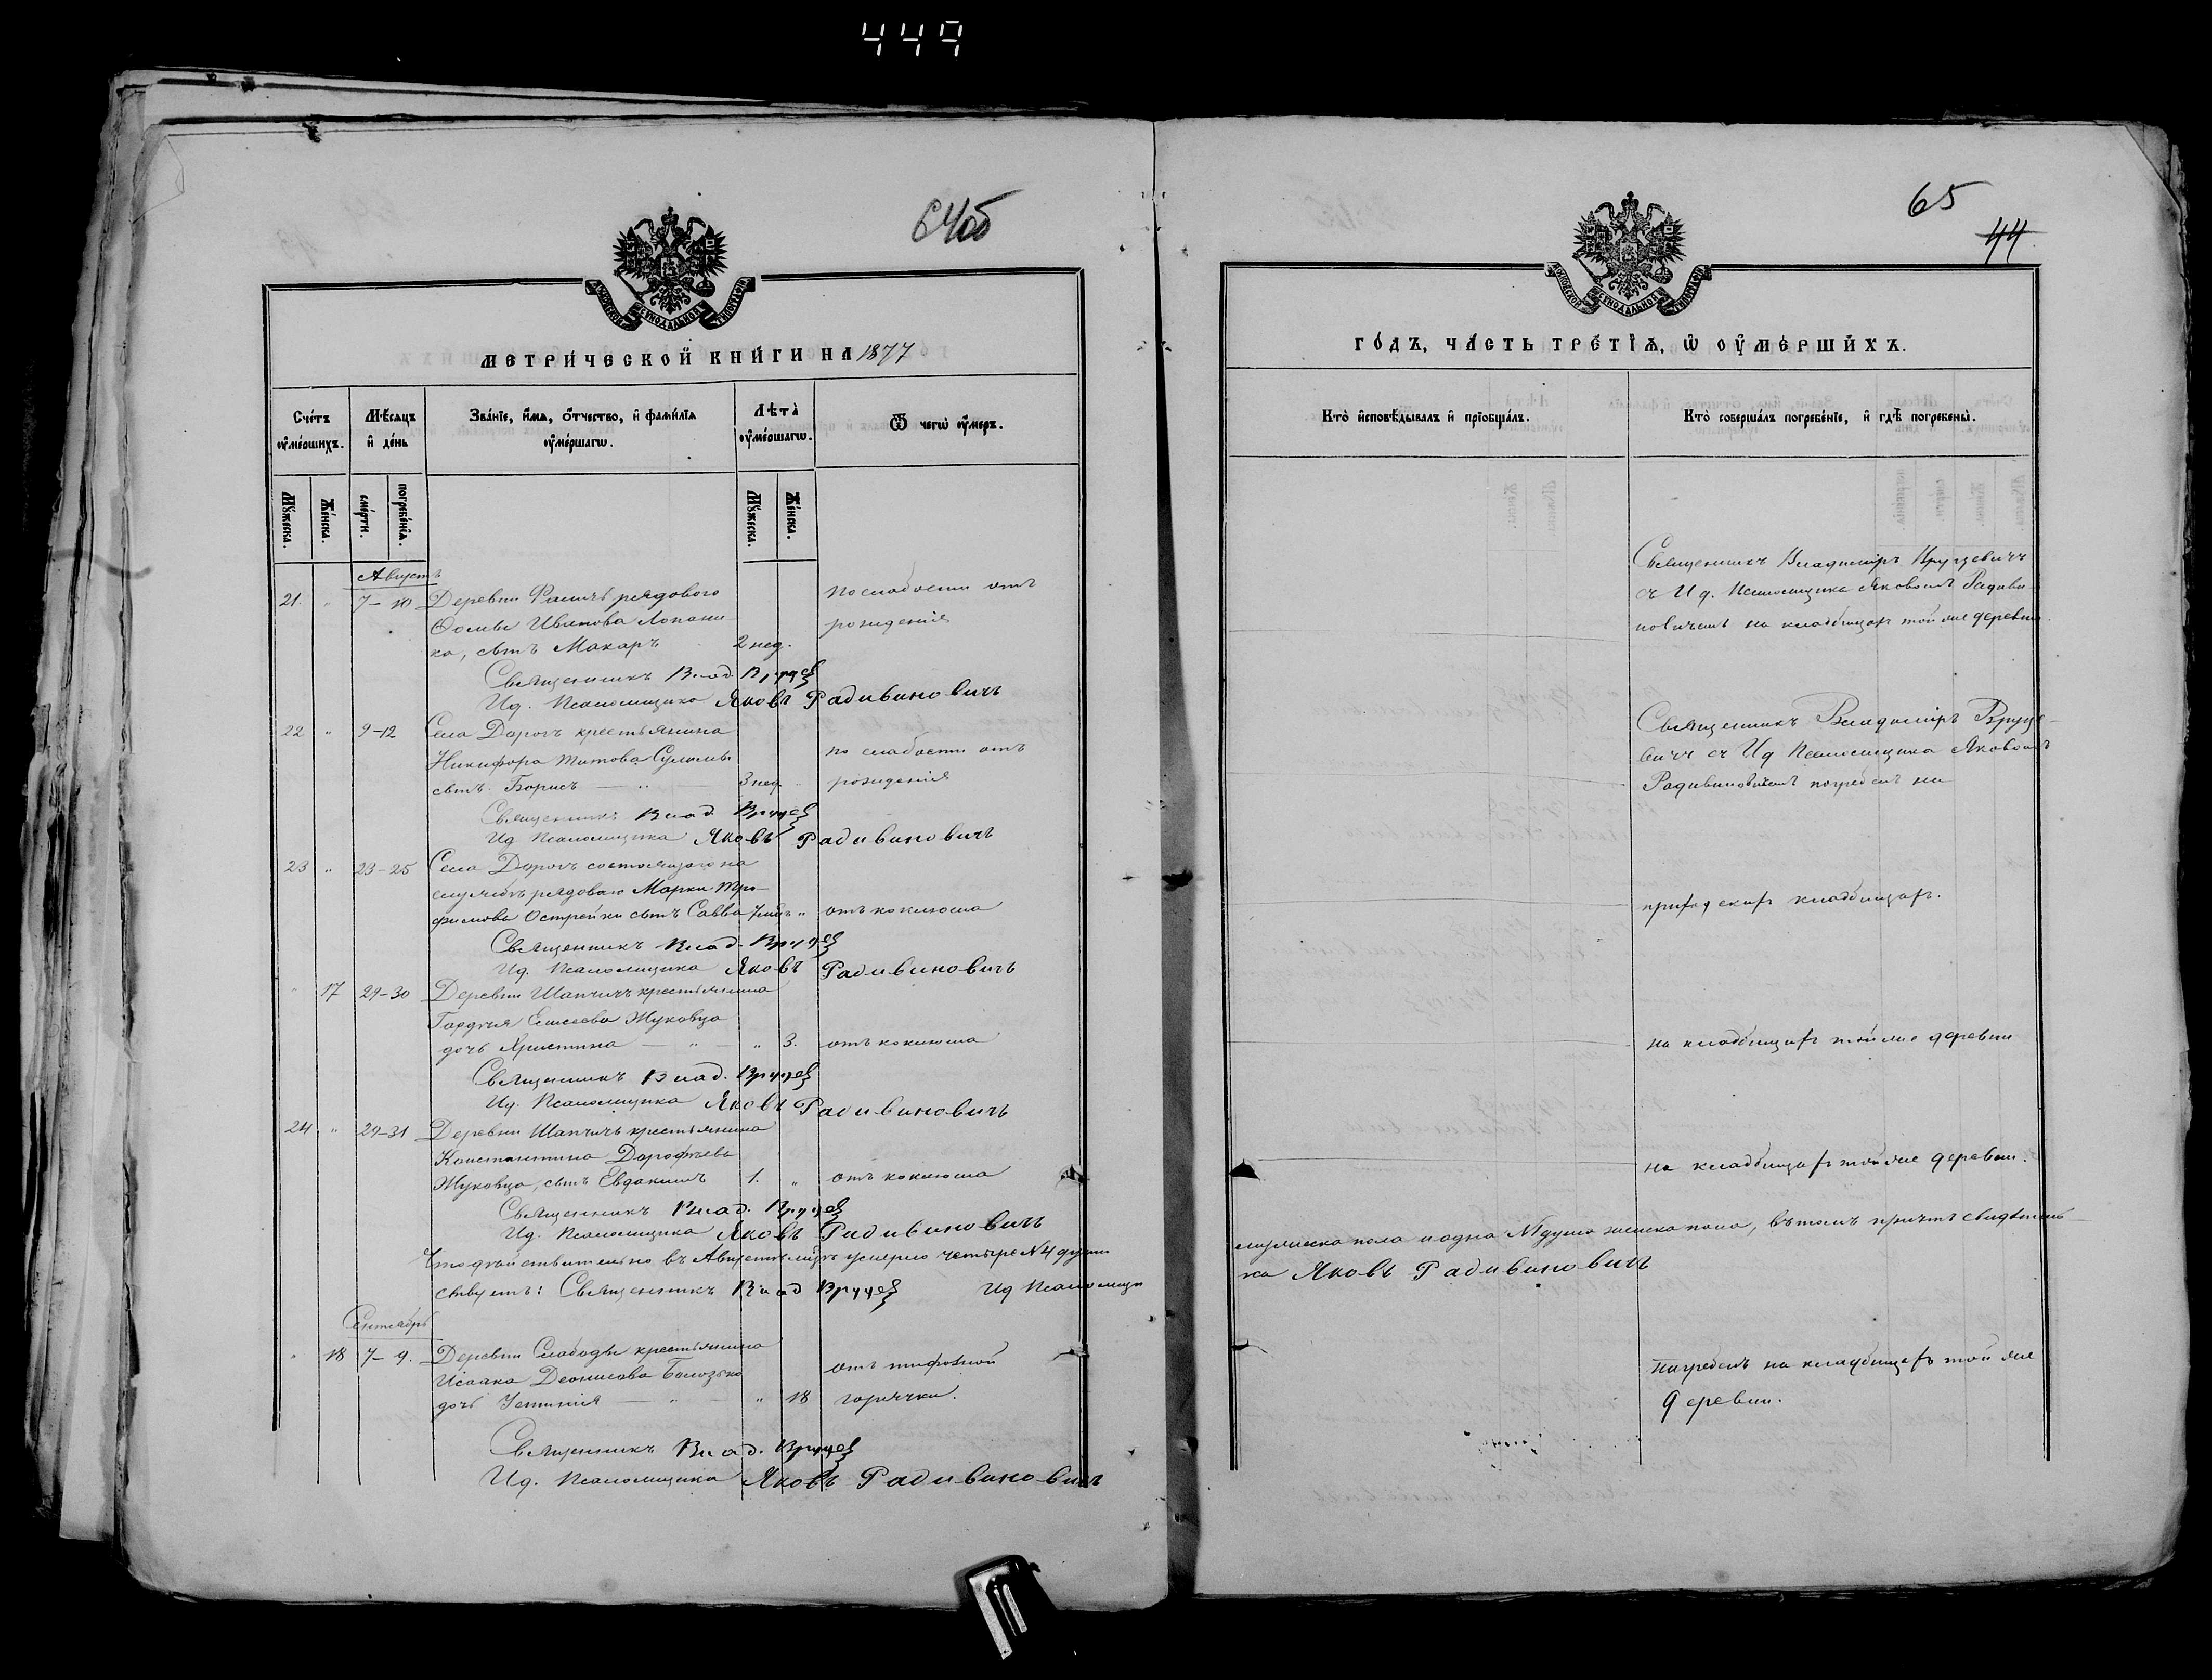 449
64об
МЕТРИЧЕСКОЙ КНИГИ НА 1877
Счетъ оумершихъ.
Мѣсяцъ и день
Званіе, имя, отчество, и фамилія оумершагѡ.
Лѣта оумершагѡ.
Ѿ чегѡ оумеръ.
Мужеска.
Женска.
смерти.
погребенія.
Мужеска.
Женска.
Августъ
21. " 7-10 Деревни рядового по слабости отъ
Ѳомы Иванова Лопани рожденія
ка, сынъ Макаръ 2 нед.
Священникъ Влад. Вруцев
Ид. Псаломщика Яковъ Радивиновичъ
22 " 9-12 Села Дорогъ крестьянина
Никифора Титова по слабости отъ
сынъ Борисъ — " — 3 нед. " рожденія
Священникъ Влад. Вруцев
Ид Псаломщика Яковъ Радивиновичъ
23 " 23-25 Села Дорогъ состоящаго на
службѣ рядоваго Марка Тро-
фимова Острейки сынъ Савва 7 мѣс. " отъ коклюша
Священникъ Влад. Вруцев
Ид. Псаломщика Яковъ Радивиновичъ
" 17 29-30 Деревни Шапчичъ крестьянина
Гордѣя Елисеева Жуковца
дочь Христина — " — " 3. отъ коклюша
Священникъ Влад. Вруцев
Ид. Псаломщика Яковъ Радивиновичъ
24 " 29-31 Деревни Шапчичъ крестьянина
Константина Дорофѣева
Жуковца, сынъ Евдокимъ 1. " отъ коклюша
Священникъ Влад. Вруцев
Ид. Псаломщика Яковъ Радивиновичъ
Что дѣйствительно въ Августѣ мѣс. умерло четыре №4 души
Священникъ Влад Вруцев Ид Псаломщи
Сентябрь
" 18 7-9. Деревни Слободы крестьянина
Исаака Деонисова отъ тифозной
дочь Устинія — " — " 18 горячки.
Священникъ Влад. Вруцев
Ид. Псаломщика Яковъ Радивиновичъ
65
44
ГОДЪ, ЧАСТЬ ТРЕТІѦ, Ѡ ОУМЕРШИХЪ.
Кто исповѣдывалъ и пріобщалъ.
Кто совершалъ погребеніе, и гдѣ погребены.
Священникъ Владиміръ Вруцевичъ
съ Ид. Псаломщика Яковомъ Радиви
новичемъ на кладбищѣ той же деревни
Священникъ Владиміръ Вруце-
вичъ съ Ид Псаломщика Яковомъ
Радивиновичемъ погребенъ на
приходскихъ кладбищахъ.
на кладбищахъ той же деревни
на кладбищахъ той же деревни.
мужеска пола и одна №1 душа женска пола, въ томъ причтъ свидѣтель-
ка Яковъ Радивиновичъ
Погребенъ на кладбищахъ той же
деревни.